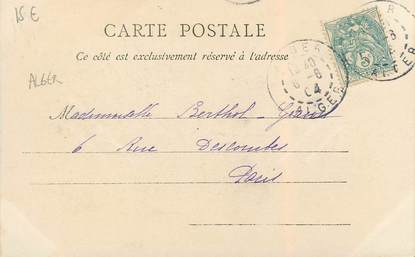 15 €
CARTE POSTALE
Ce côté est exclusivement réservé à l'adresse
ALGER
ALGER
04
Mademoiselle Berthol-Graivil
6 Rue Descombes
Paris